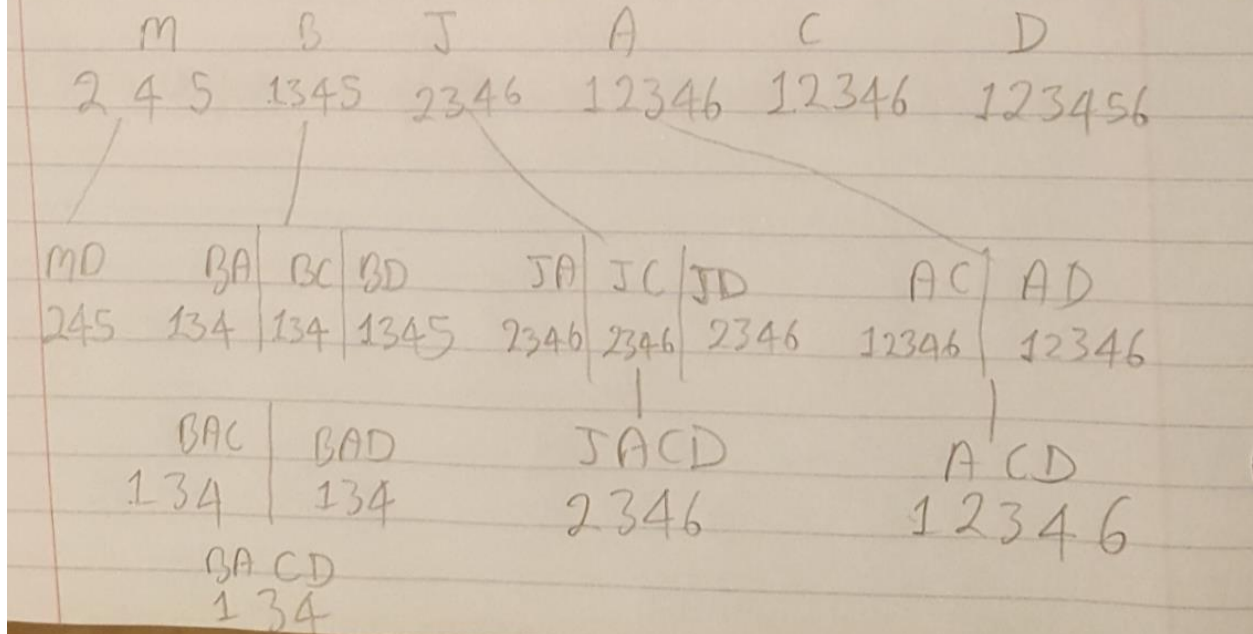 M B J A C D
2 4 5 1345 2346 12346 12346 123456
MD BA BC BD JA JC JD AC AD
245 134 134 1345 2346 2346 2346 12346 12346
BAC BAD JACD ACD
134 134 2346 12346
BACD
134